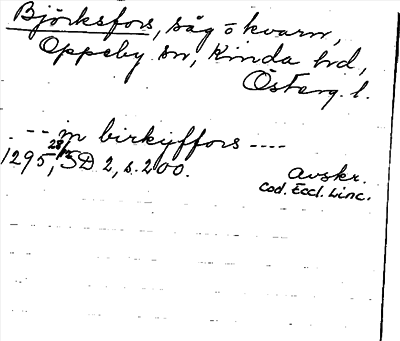 Björksfors, såg o kvarn,
Oppeby sn, Kinda hd,
Österg. l.
-- in birkyffors ----
1295, SD 2, s. 200.
Avskr.
Cod. Eccl. Linc.